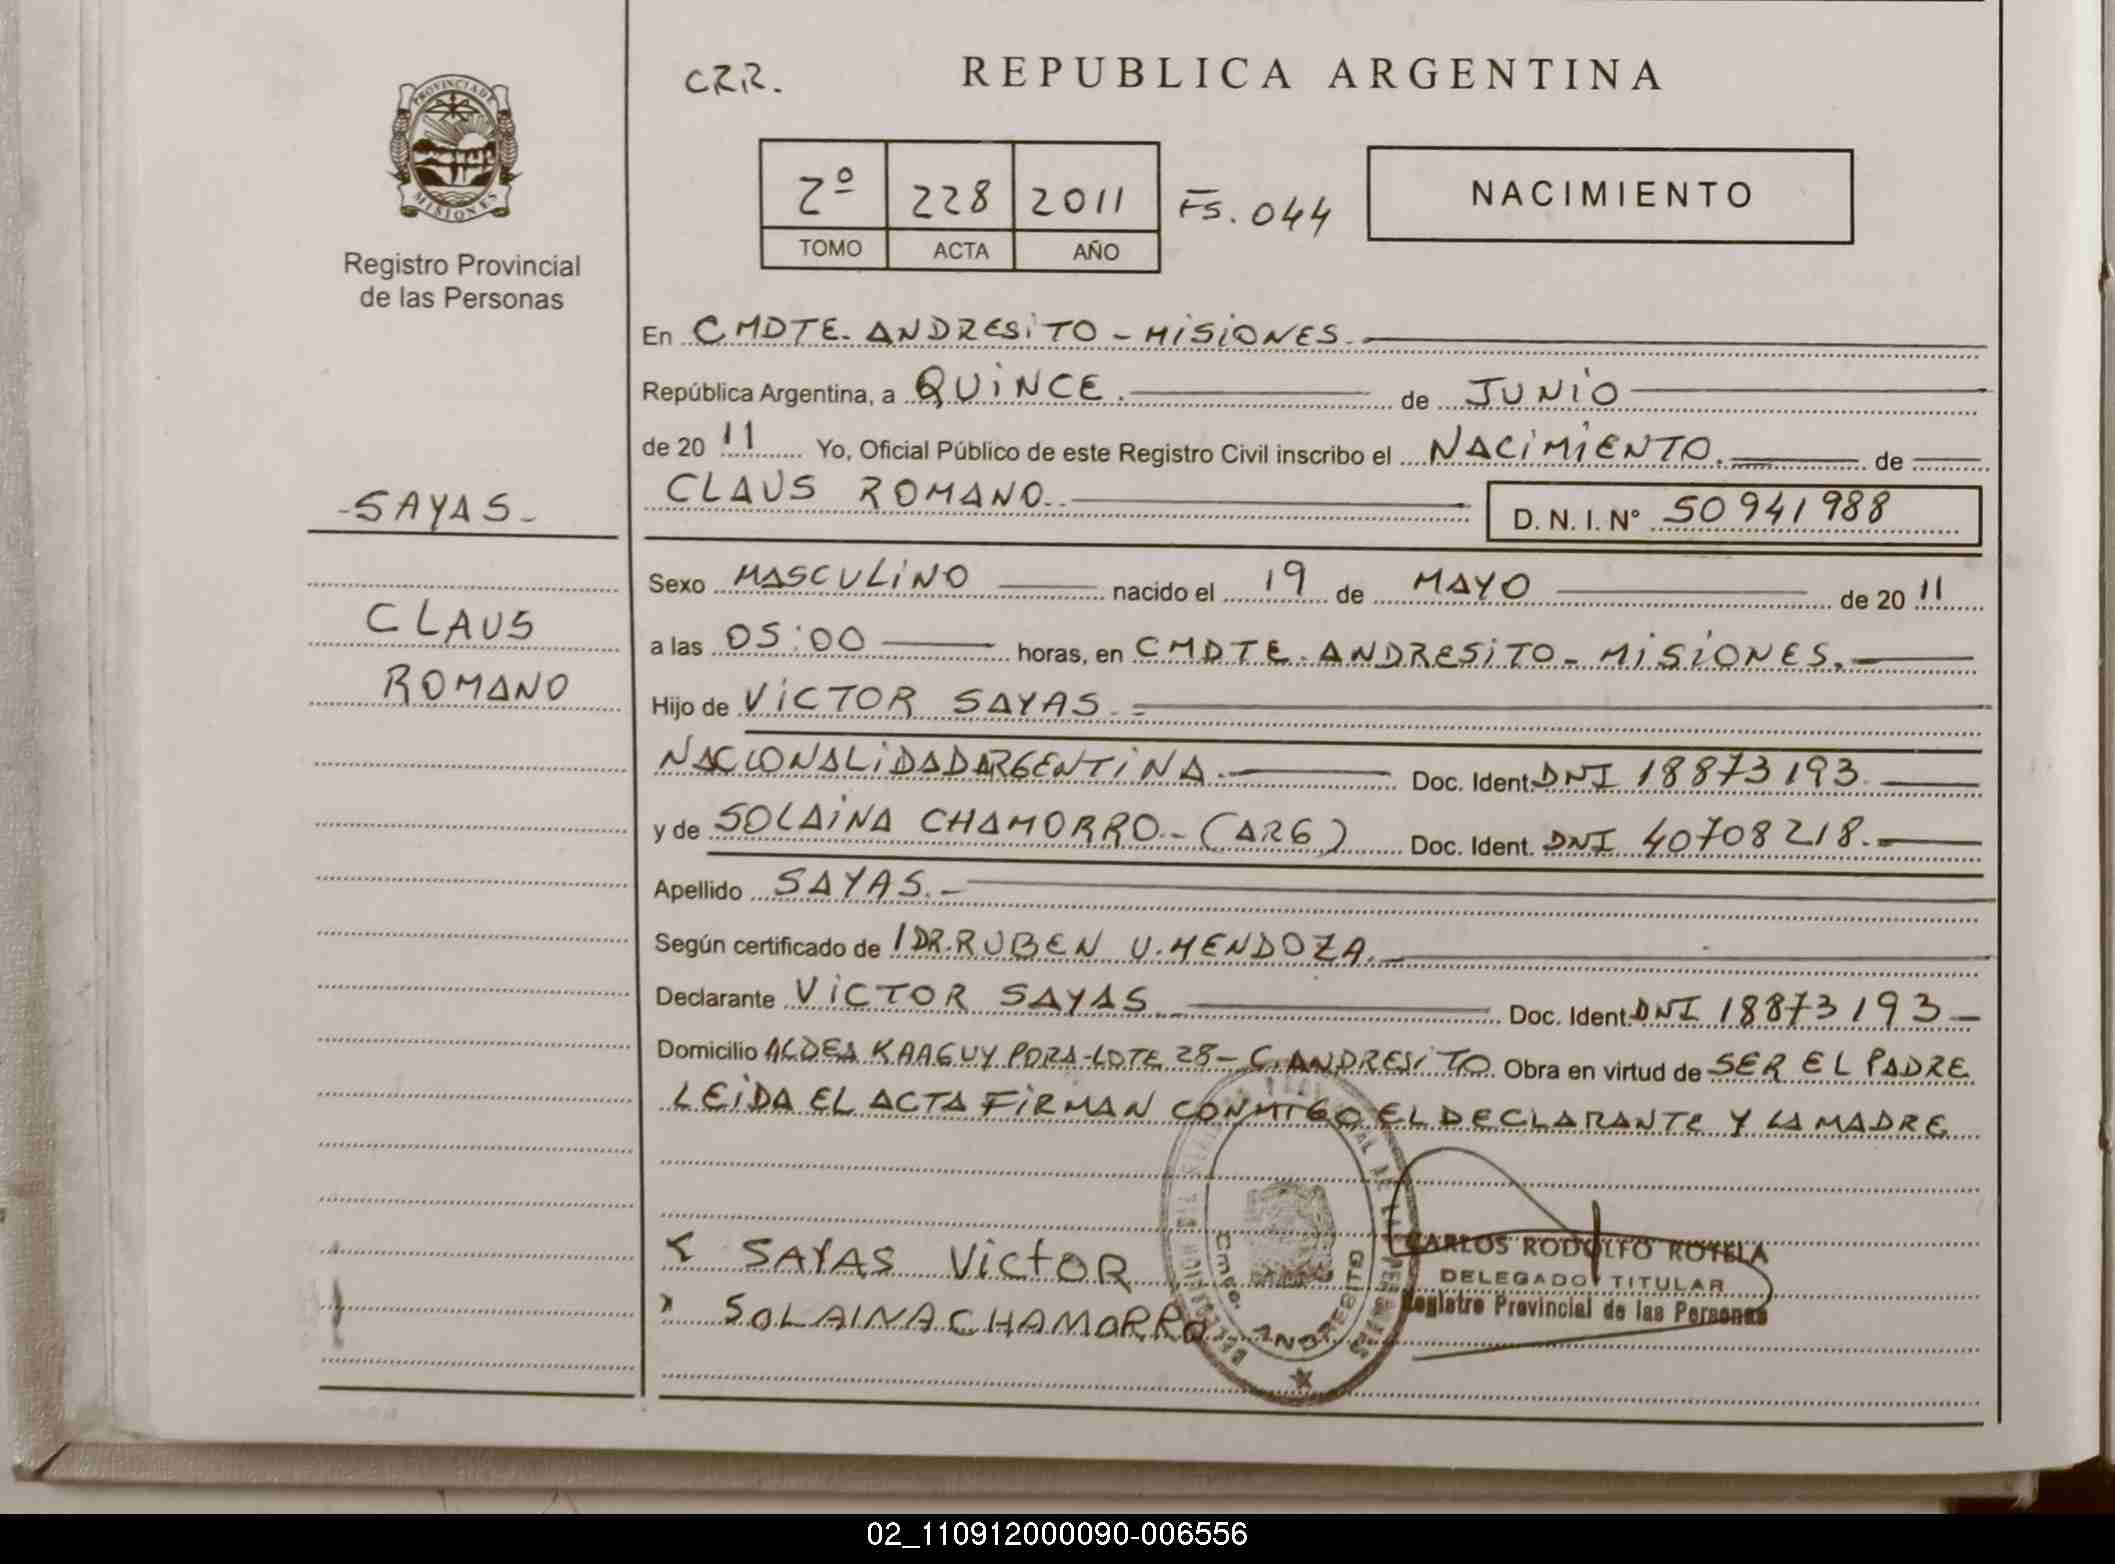 C.R.R.
REPUBLICA ARGENTINA
PROVINCIA DE
MISIONES
Registro Provincial
de las Personas
2º 228 2011 Fs. 044
TOMO ACTA AÑO
NACIMIENTO
En CMDTE. ANDRESITO - MISIONES.
República Argentina, a QUINCE. de JUNIO
de 20 11 Yo, Oficial Público de este Registro Civil inscribo el NACIMIENTO. de
CLAUS ROMANO. D. N. I. Nº 50941988
-SAYAS-
CLAUS
ROMANO
Sexo MASCULINO nacido el 19 de MAYO de 20 11
a las 05:00 horas, en CMDTE. ANDRESITO - MISIONES.
Hijo de VICTOR SAYAS.
NACIONALIDAD ARGENTINA. Doc. Ident. DNI 18873193.
y de SOLAINA CHAMORRO.- (ARG) Doc. Ident. DNI 40708218.
Apellido SAYAS.
Según certificado de / DR. RUBEN U. MENDOZA.
Declarante VICTOR SAYAS Doc. Ident. DNI 18873193
Domicilio ALDEA KAAGUY PORA-LOTE 28- C. ANDRESITO Obra en virtud de SER EL PADRE
LEIDA EL ACTA FIRMAN CONMIGO EL DECLARANTE Y LA MADRE
SAYAS VictOR
SOLAINA CHAMORRO
Cmte. ANDRESITO
CARLOS RODOLFO ROTELA
DELEGADO TITULAR
Registro Provincial de las Personas
02_110912000090-006556